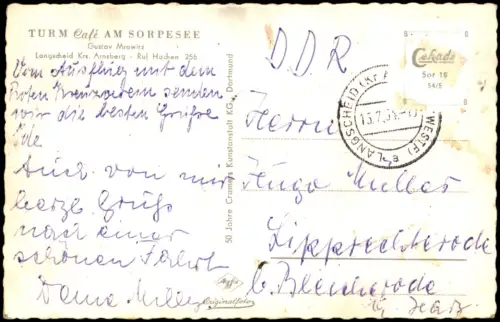 TURM Café AM SORPESEE
Gustav Mrowitz
Langscheid Krs. Arnsberg - Ruf Hachen 256
Vom Ausflug mit dem
Roten Kreuzverein senden
wir die besten Grüße
Ide
Auch von mir
herzl. Gruß
nach einer
schönen Fahrt
50 Jahre Cramers Kunstanstalt KG., Dortmund
Agfa
Originalfoto
DDR
LANGSCHEID (Kr.
WESTF)
Cekade
Sor 19
54/5
B
B
B
B
Herrn
Hugo Müller
Lipprechterode
b. Bleicherode
Harz